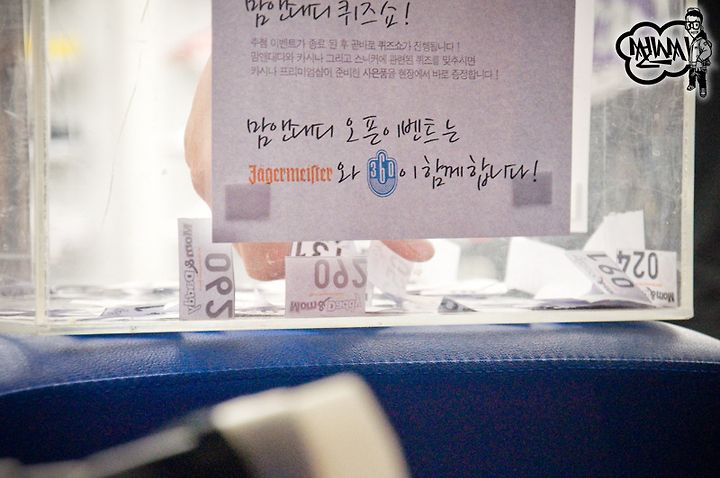 맘앤대디 퀴즈쇼!
추첨 이벤트가 종료 된 후 곧바로 퀴즈쇼가 진행됩니다!
맘앤대디와 카시나 그리고 스니커에 관련된 퀴즈를 맞추시면
카시나 프리미엄샵이 준비한 사은품을 현장에서 바로 증정합니다!
맘앤대디 오픈이벤트는
Jägermeister 와 360 이 함께합니다!
Mom & Daddy
062
290
Mom & Daddy
091
024
Mom &